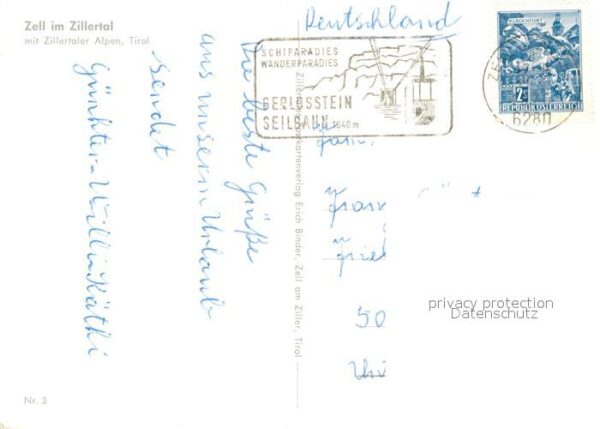 Zell im Zillertal
mit Zillertaler Alpen, Tirol
Die beste Grüße
aus unserm Urlaub
sendet
Günther-Willi u Käthi
Nr. 3
Zillertaler Ansichtskartenverlag Erich Binder, Zell am Ziller, Tirol
Deutschland
SCHIPARADIES
WANDERPARADIES
GERLOSSTEIN
SEILBAHN 1640 m
6280
KLAGENFURT
2S
REPUBLIK ÖSTERREICH
50
privacy protection
Datenschutz